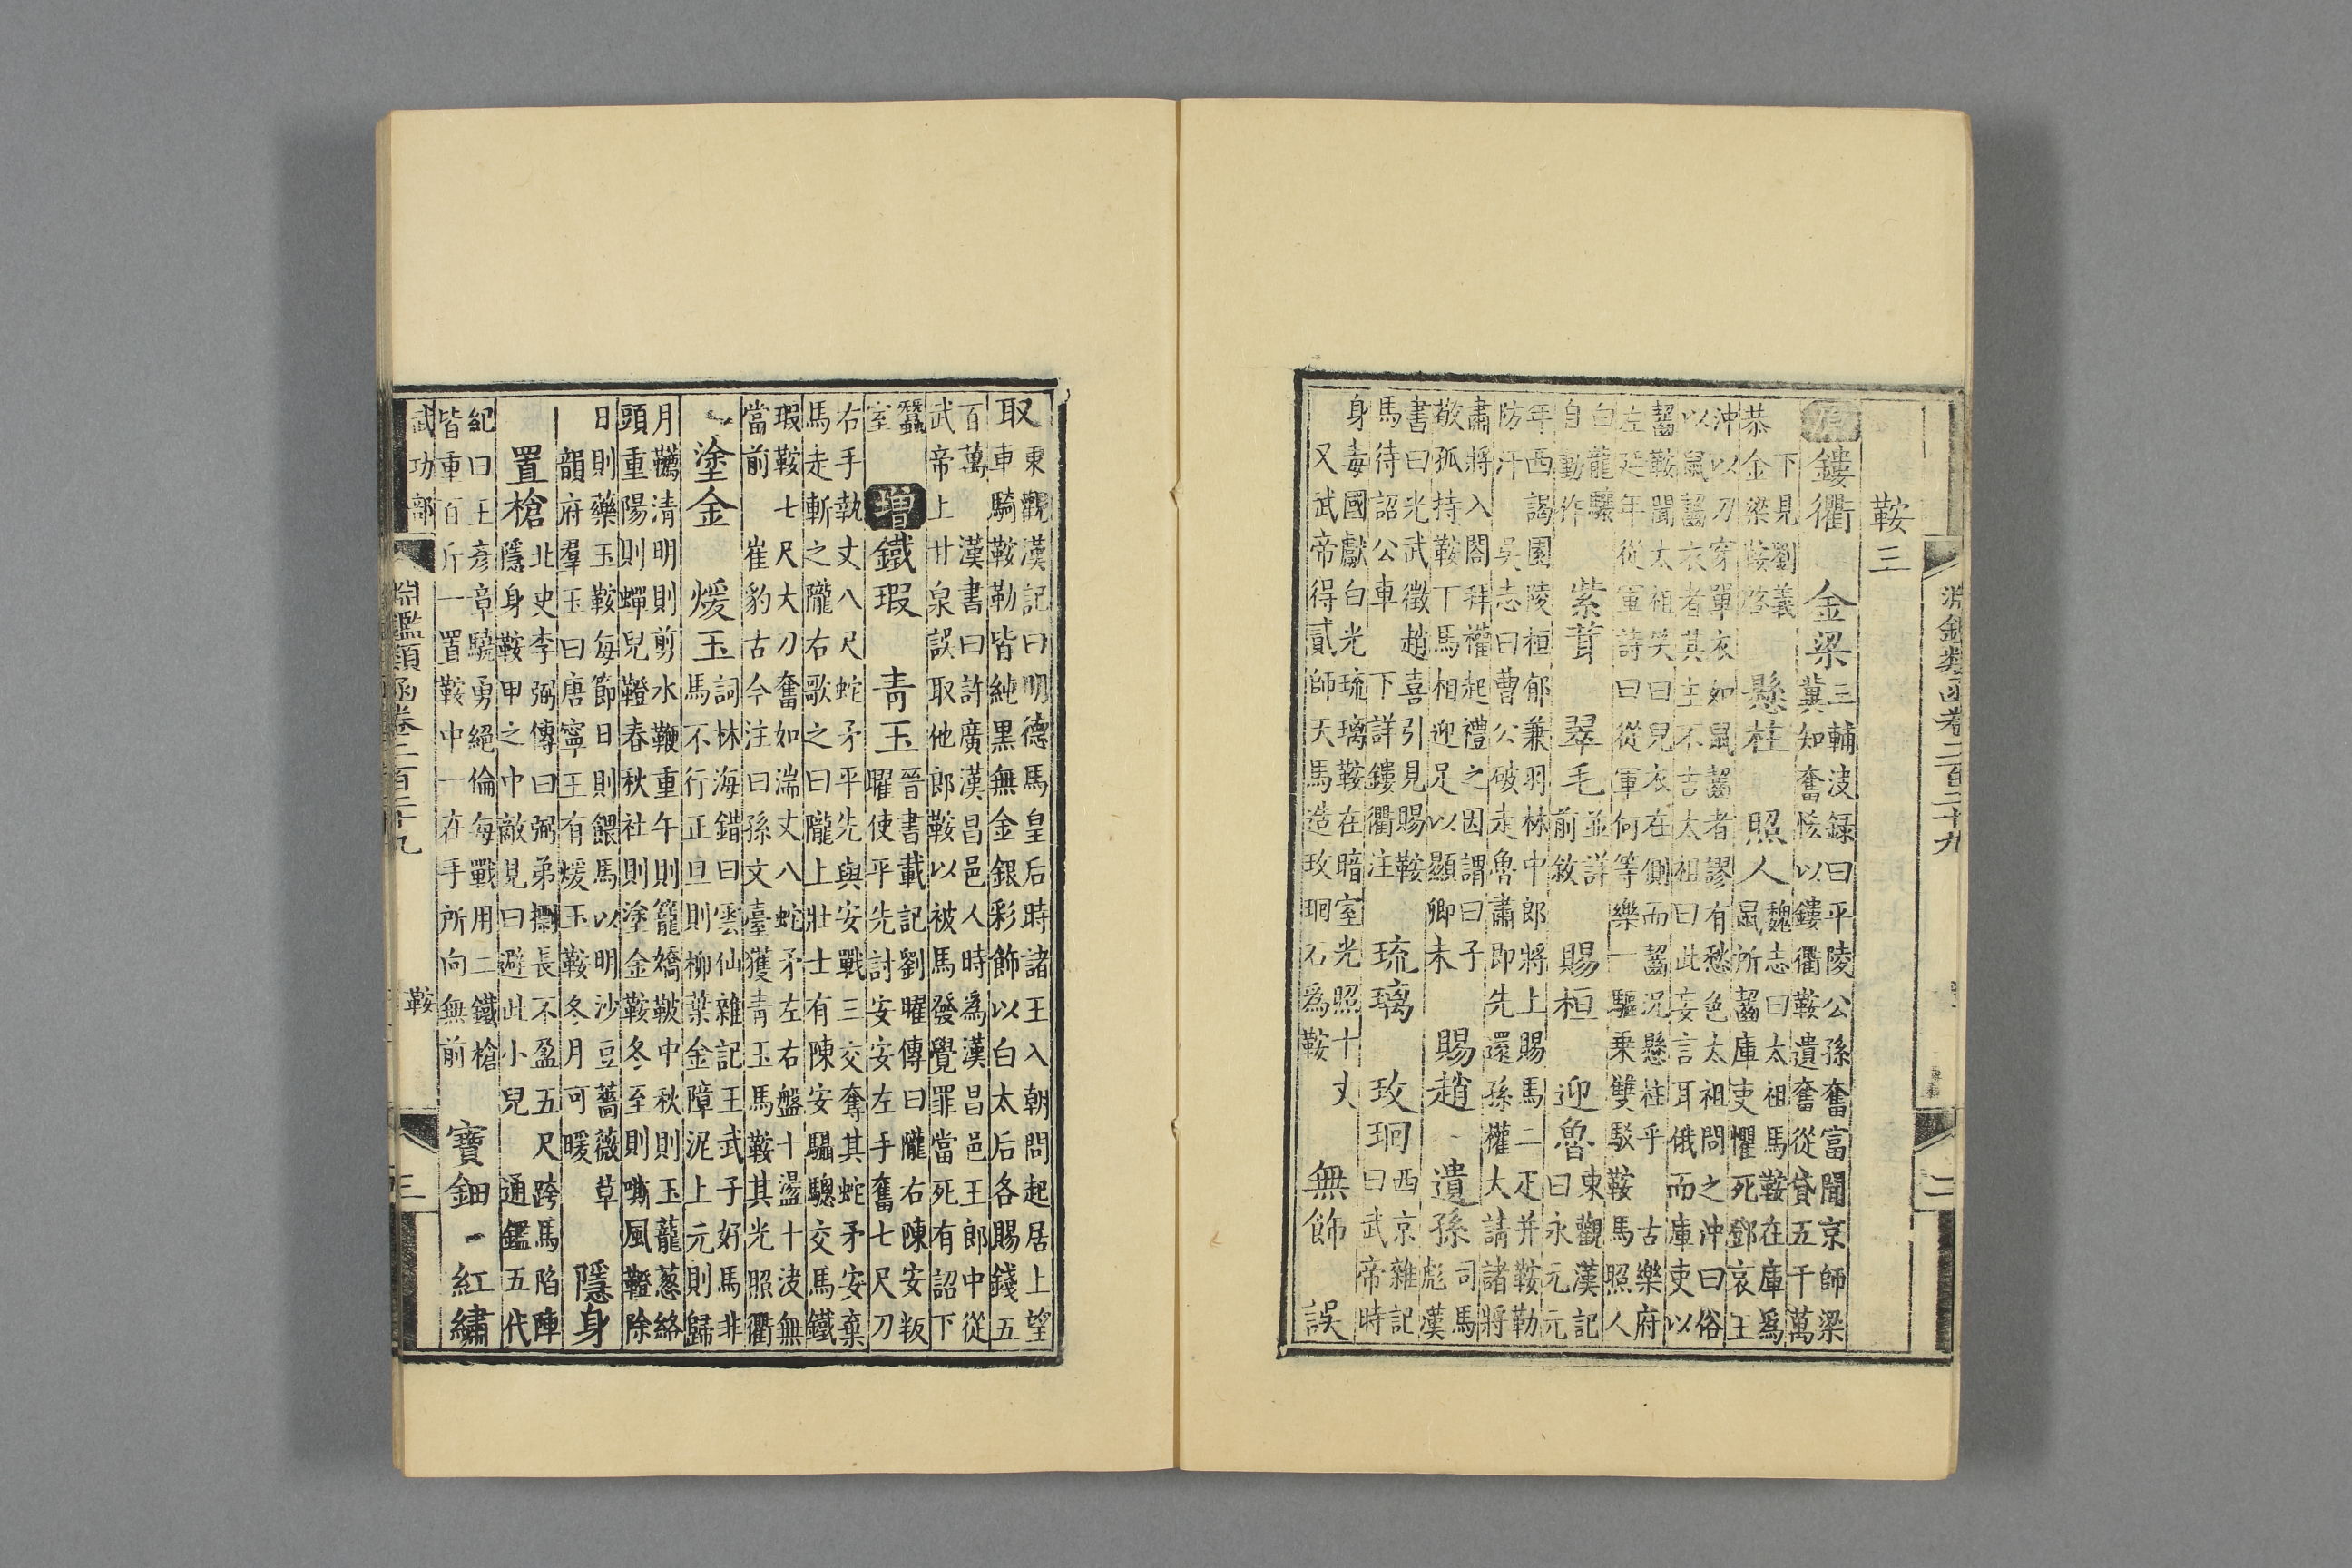 淵鑑类函卷二百二十九 二
鞍三
原 鏤衢 金梁 三輔決録曰平陵公孫奮富聞京師梁
冀知奮恡以鏤衢鞍遺奮從貸五千萬
下見劉義
恭金梁鞍啓 懸柱 照人 魏志曰太祖馬鞍在庫為
鼠所齧庫吏懼死鄧哀王
沖以刀穿單衣如鼠齧者謬有愁色太祖問之沖曰俗
以鼠齧衣者其主不吉太祖曰此妄言耳俄而庫吏以
齧鞍聞太祖笑曰兒衣在側而齧況懸柱乎 古樂府
左延年從軍詩曰從軍何等樂一驅乗雙駁鞍馬照人
白龍驤
自動作 紫茸 翠毛 並詳
前敘 賜桓 迎魯 東觀漢記
曰永元元
年西謁園陵桓郁兼羽林中郎將上賜馬二疋并鞍勒
防汗 吳志曰曹公破走魯肅即先還孫權大請諸將
肅將入閤拜權起禮之因謂曰子
敬孤持鞍下馬相迎足以顯卿未 賜趙 遺孫 司馬
彪漢
書曰光武徵趙喜引見賜鞍
馬待詔公車 下詳鏤衢注 琉璃 玫珂 西京雜記
曰武帝時
身毒國獻白光琉璃鞍在暗室光照十丈
又武帝得貳師天馬造玫珂石為鞍 無飾 誤
取 東觀漢記曰明德馬皇后時諸王入朝問起居上望
車騎鞍勒皆純黒無金銀彩飾以白太后各賜錢五
百萬 漢書曰許廣漢昌邑人時為漢昌邑王郎中從
武帝上甘泉誤取他郎鞍以被馬發覺罪當死有詔下
蠶
室 增 鐵瑕 青玉 晉書載記劉曜傳曰隴右陳安叛
曜使平先討安安左手奮七尺刀
右手執丈八尺蛇矛平先與安戰三交奪其蛇矛安棄
馬走斬之隴右歌之曰隴上壯士有陳安驌驄交馬鐵
瑕鞍七尺大刀奮如湍丈八蛇矛左右盤十盪十決無
當前 崔豹古今注曰孫文臺獲青玉馬鞍其光照衢
塗金 煖玉 詞林海錯曰雲仙雜記王武子好馬非
馬不行正旦則柳葉金障泥上元則歸
月韉清明則剪水鞭重午則籠嬌中秋則玉龍蔥絡
頭重陽則蟬兒春秋社則塗金鞍冬至則嘶風除
日則藥玉鞍每節日則餵馬以明沙豆薔薇草
韻府羣玉曰唐寧王有煖玉鞍冬月可暖 隱身
置槍 北史李弼傳曰弼弟檦長不盈五尺跨馬陷陣
隱身鞍甲之中敵見曰避此小兒 通鑑五代
紀曰王彥章驍勇絕倫每戰用二鐵槍
皆重百斤一置鞍中一在手所向無前 寶鈿 紅繡
武功部 鞍
淵鑑類函卷二百二十九 三